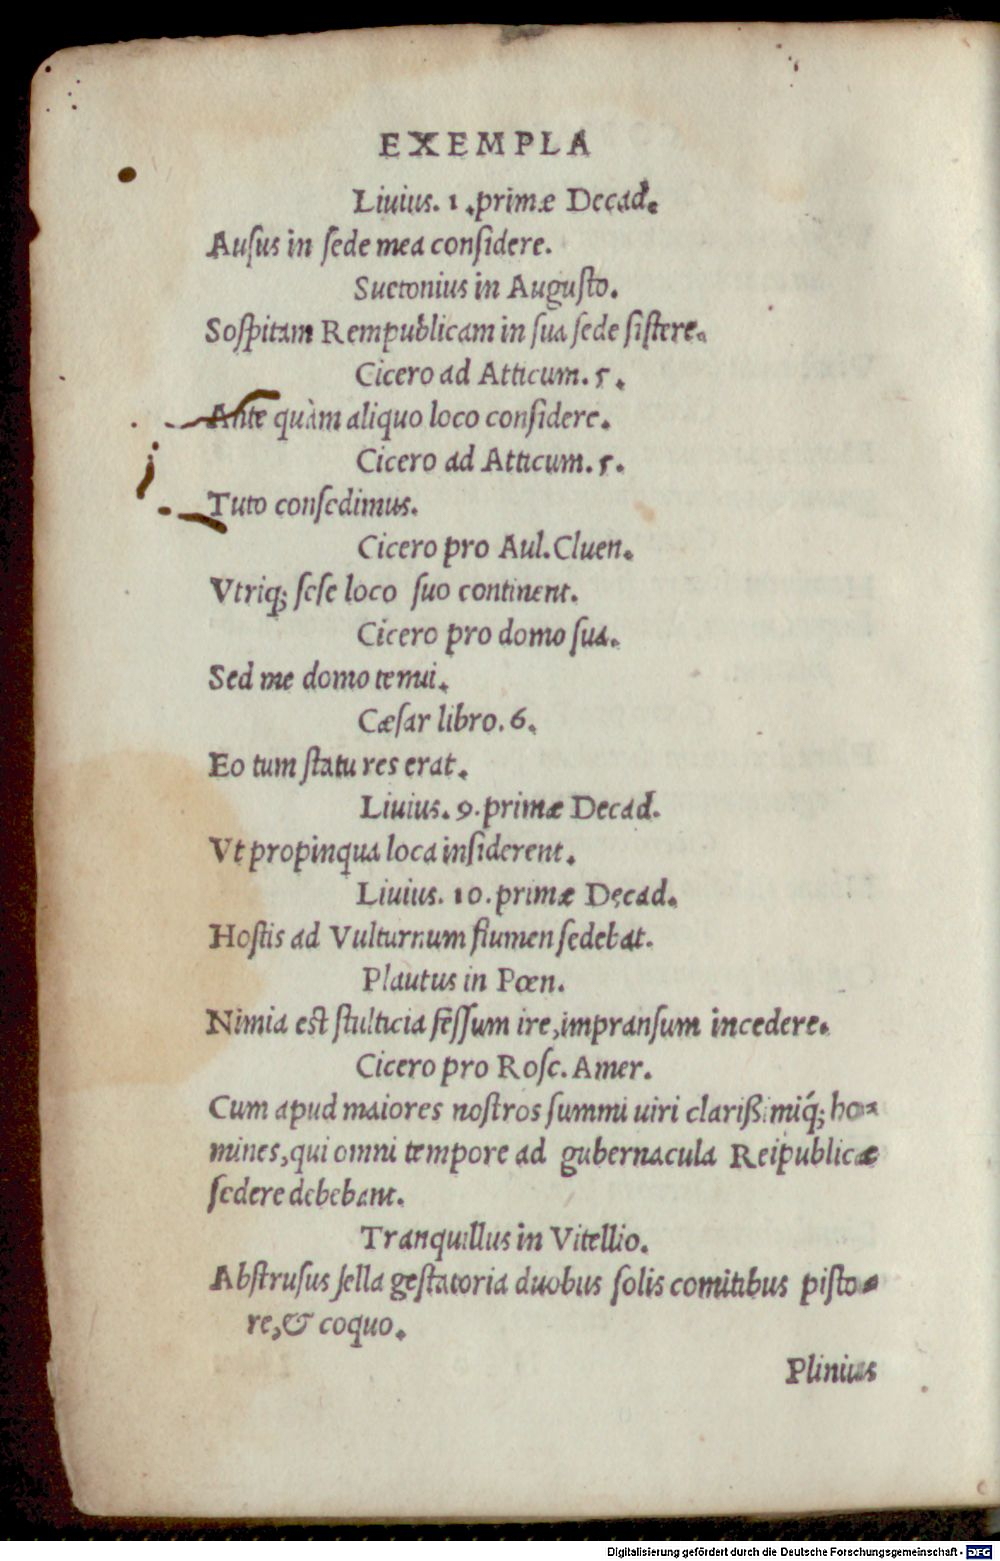 EXEMPLA
Liuius. 1. primæ Decad.
Auſus in ſede mea conſidere.
Suetonius in Auguſto.
Soſpitam Rempublicam in ſua ſede ſiſtere.
Cicero ad Atticum. 5.
Ante quàm aliquo loco conſidere.
Cicero ad Atticum. 5.
Tuto conſedimus.
Cicero pro Aul. Cluen.
Vtriq; ſeſe loco ſuo continent.
Cicero pro domo ſua.
Sed me domo tenui.
Cæſar libro. 6.
Eo tum ſtatu res erat.
Liuius. 9. primæ Decad.
Vt propinqua loca inſiderent.
Liuius. 10. primæ Decad.
Hoſtis ad Vulturnum flumen ſedebat.
Plautus in Pœn.
Nimia est ſtulticia feſſum ire, impranſum incedere.
Cicero pro Roſc. Amer.
Cum apud maiores noſtros ſummi uiri clariſsimiq́; ho-
mines, qui omni tempore ad gubernacula Reipublicæ
ſedere debebant.
Tranquillus in Vitellio.
Abſtruſus ſella geſtatoria duobus ſolis comitibus piſto-
re, & coquo.
Plinius
Digitalisierung gefördert durch die Deutsche Forschungsgemeinschaft - DFG